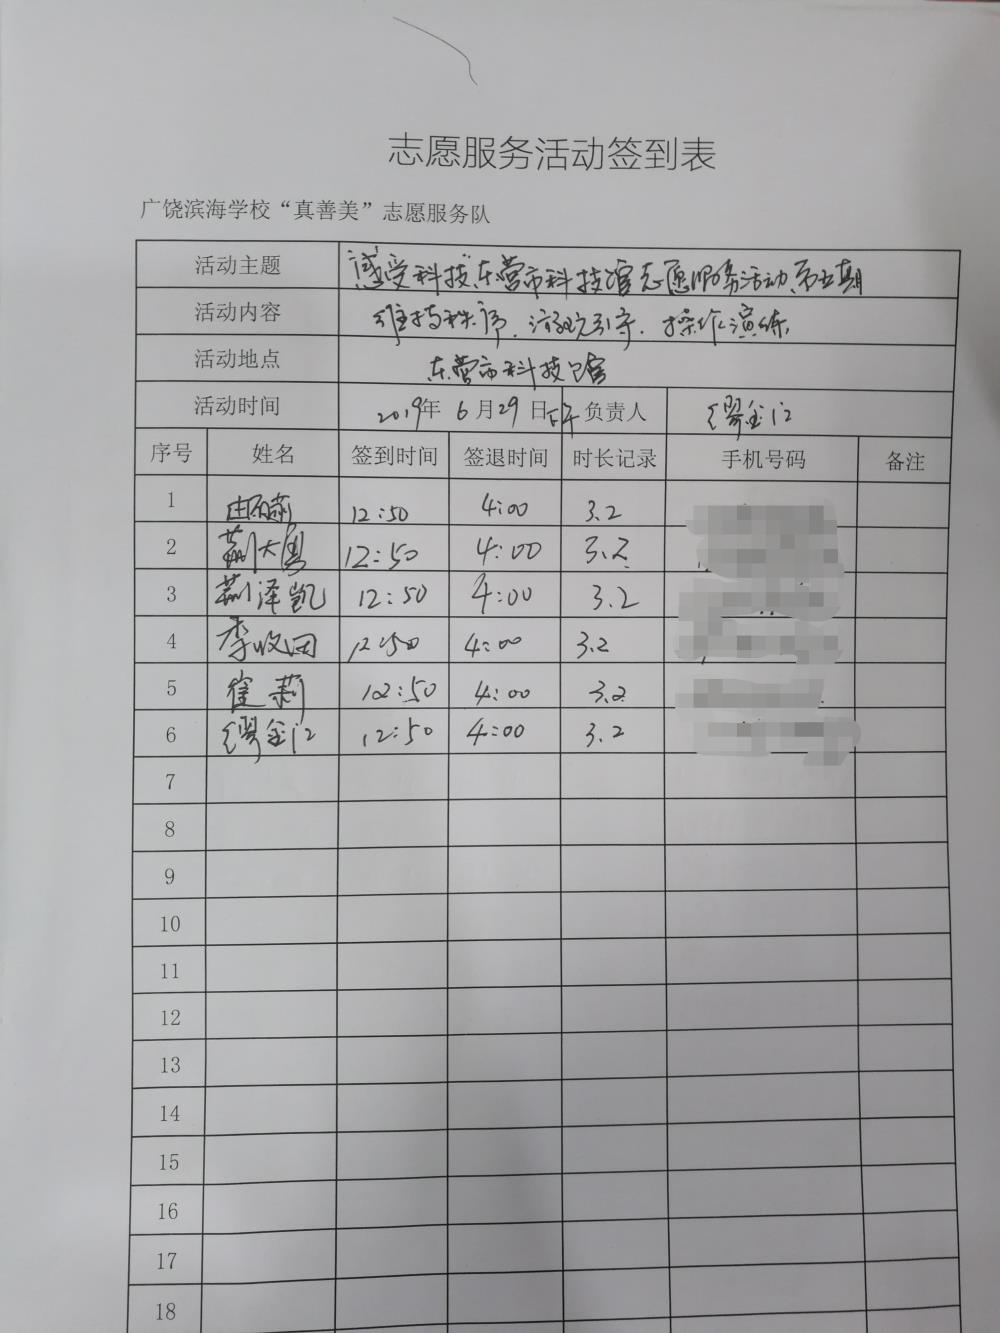 志愿服务活动签到表
广饶滨海学校“真善美”志愿服务队
活动主题 “感受科技”东营市科技馆志愿服务活动第五期
活动内容 维持秩序、游玩引导、操作演练
活动地点 东营市科技馆
活动时间 2019年 6月29日下午 负责人 缪金江
序号 姓名 签到时间 签退时间 时长记录 手机号码 备注
1 12:50 4:00 3.2
2 荆大勇 12:50 4:00 3.2
3 荆泽凯 12:50 4:00 3.2
4 李收田 12:50 4:00 3.2
5 崔莉 12:50 4:00 3.2
6 缪金江 12:50 4:00 3.2
7
8
9
10
11
12
13
14
15
16
17
18